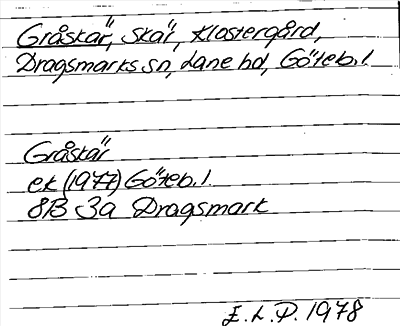 Gråskär, skär, Klostergård,
Dragsmarks sn, Lane hd, Göteb. l.
Gråskär
ek (1977) Göteb. l.
8B 3a Dragsmark
E. L. P. 1978